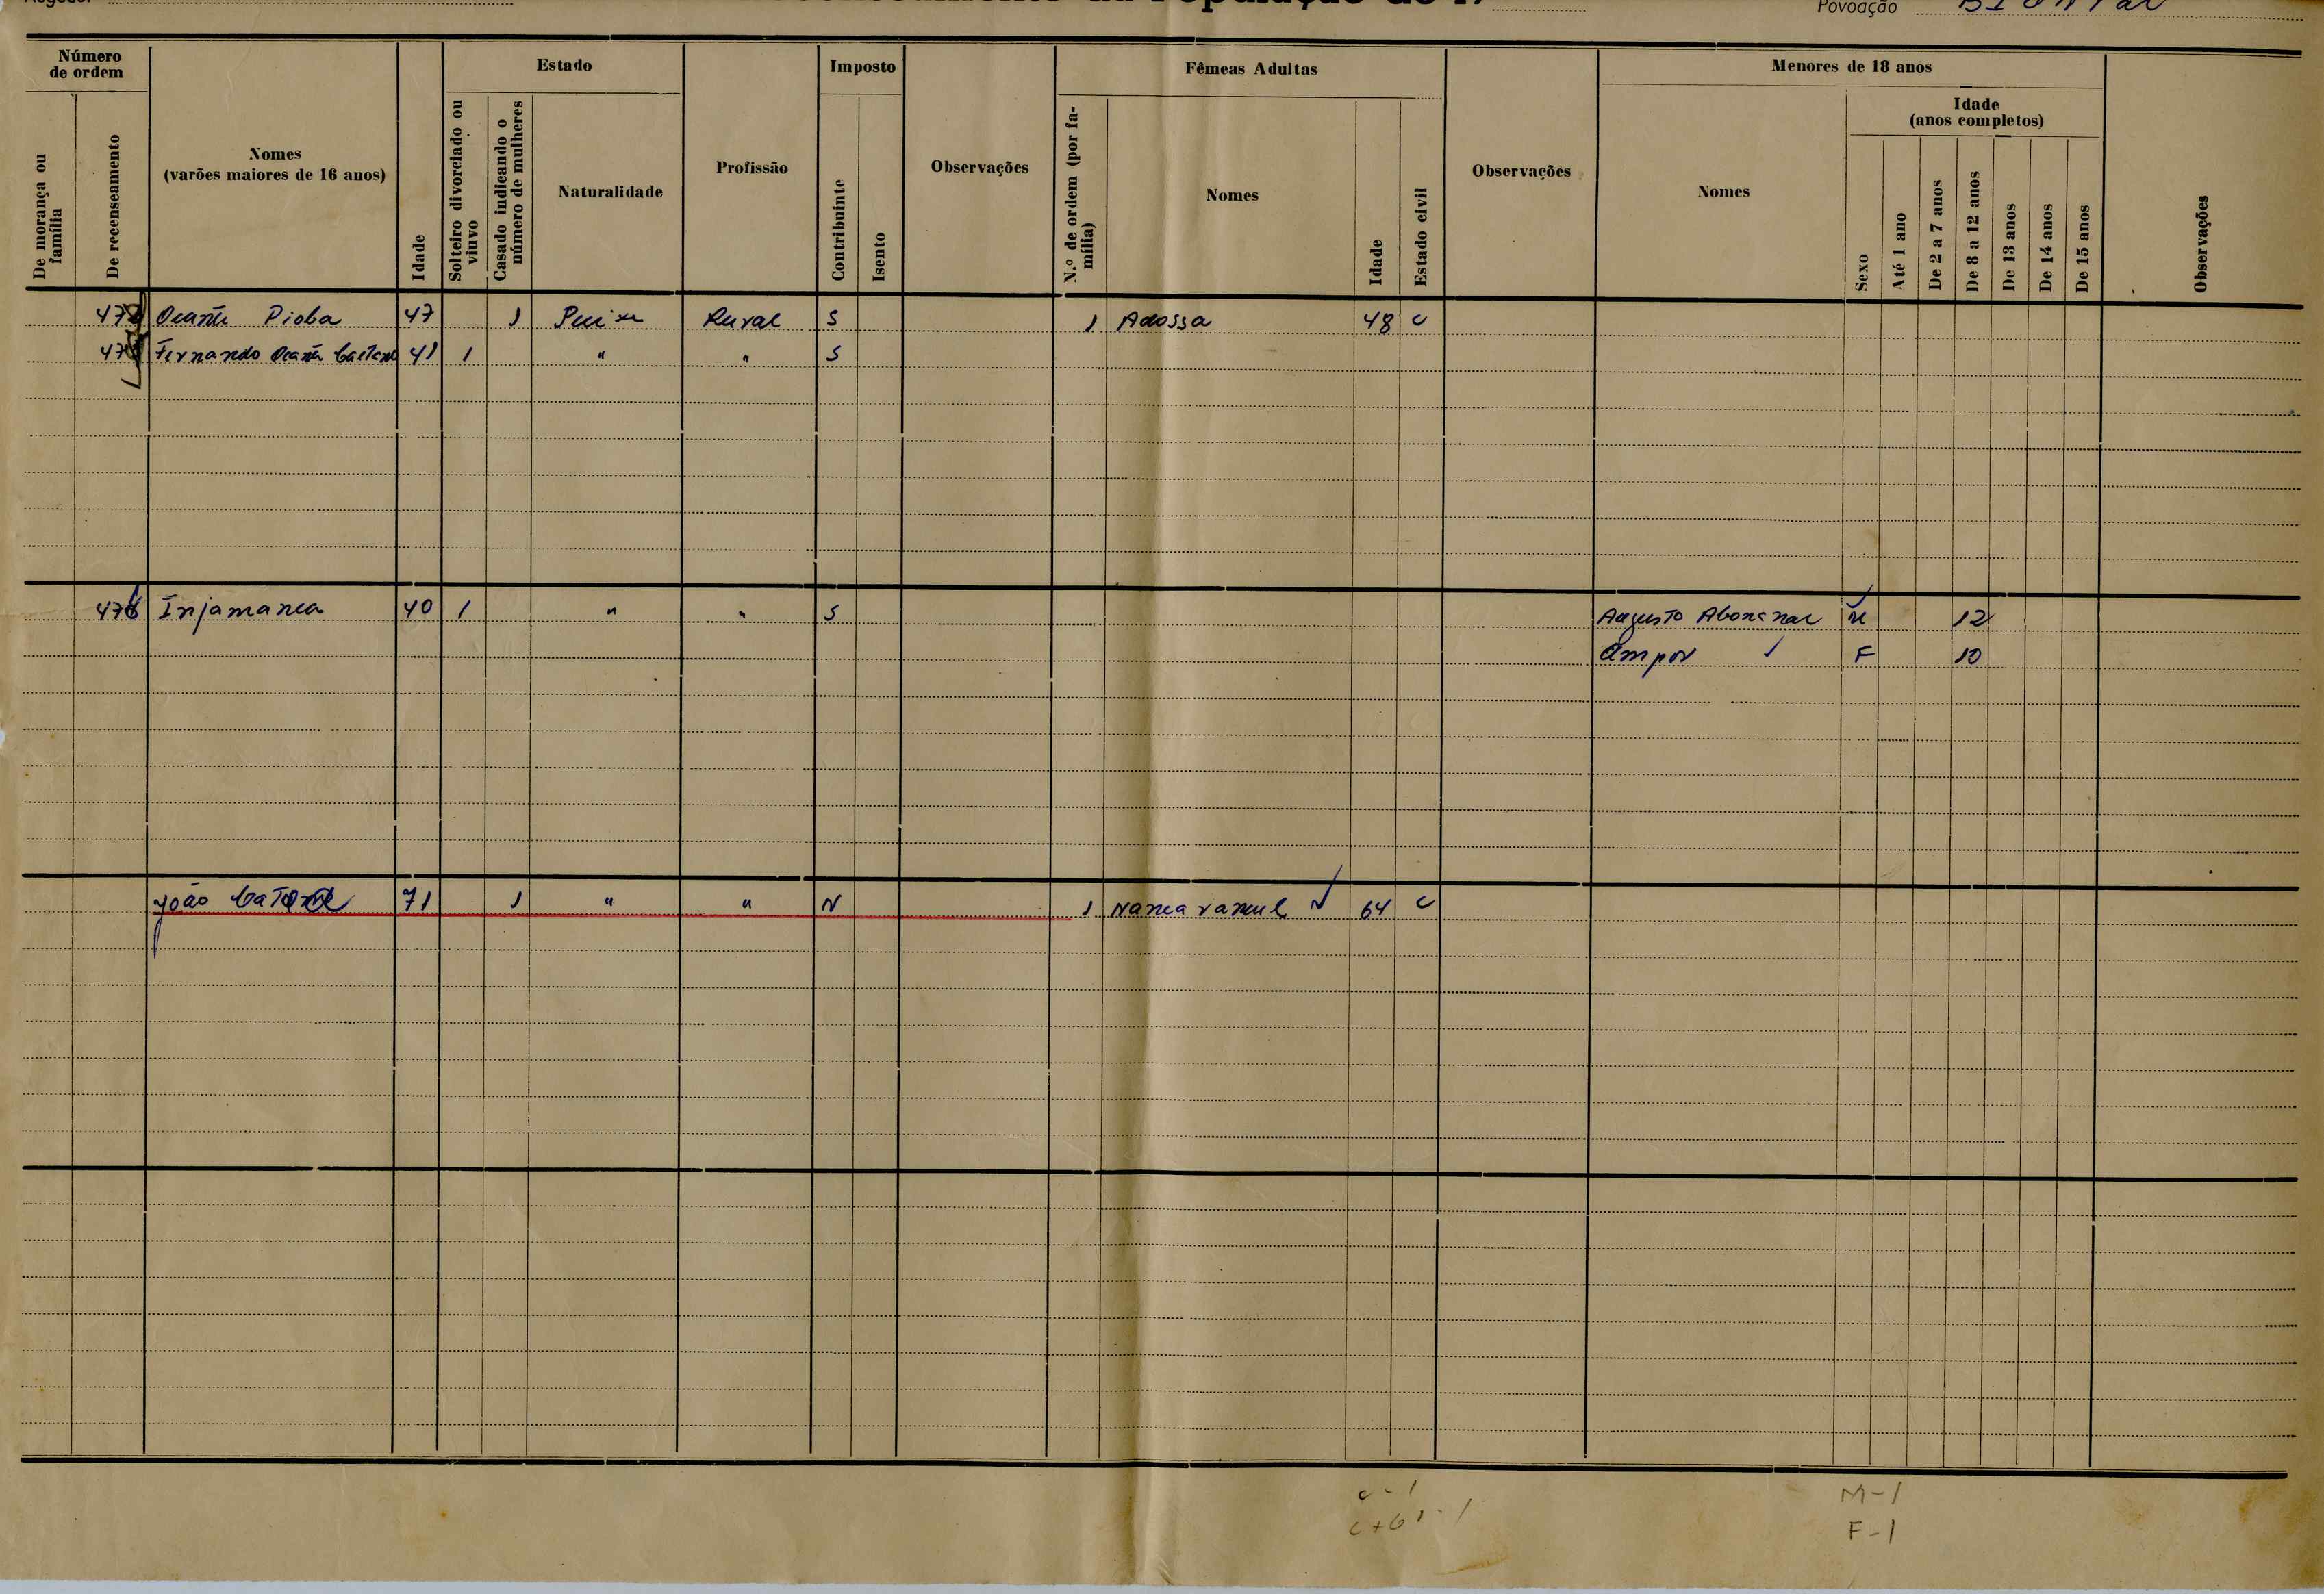 Povoação
Número de ordem
De morança ou família
De recenseamento
Nomes
(varões maiores de 16 anos)
Idade
Estado
Solteiro divorciado ou viuvo
Casado indicando o número de mulheres
Naturalidade
Profissão
Imposto
Contribuinte
Isento
Observações
Fêmeas Adultas
N.º de ordem (por família)
Nomes
Idade
Estado civil
Observações
Menores de 18 anos
Nomes
Sexo
Idade
(anos completos)
Até 1 ano
De 2 a 7 anos
De 8 a 12 anos
De 13 anos
De 14 anos
De 15 anos
Observações
Pioba 47 1 Rural S 1 Adossa 48 C
Fernando 41 1 " " S
Injamanca 40 1 " " S Augusto 12
Ampor F 10
João 71 1 " " N 1 64 C
M-1
F-1